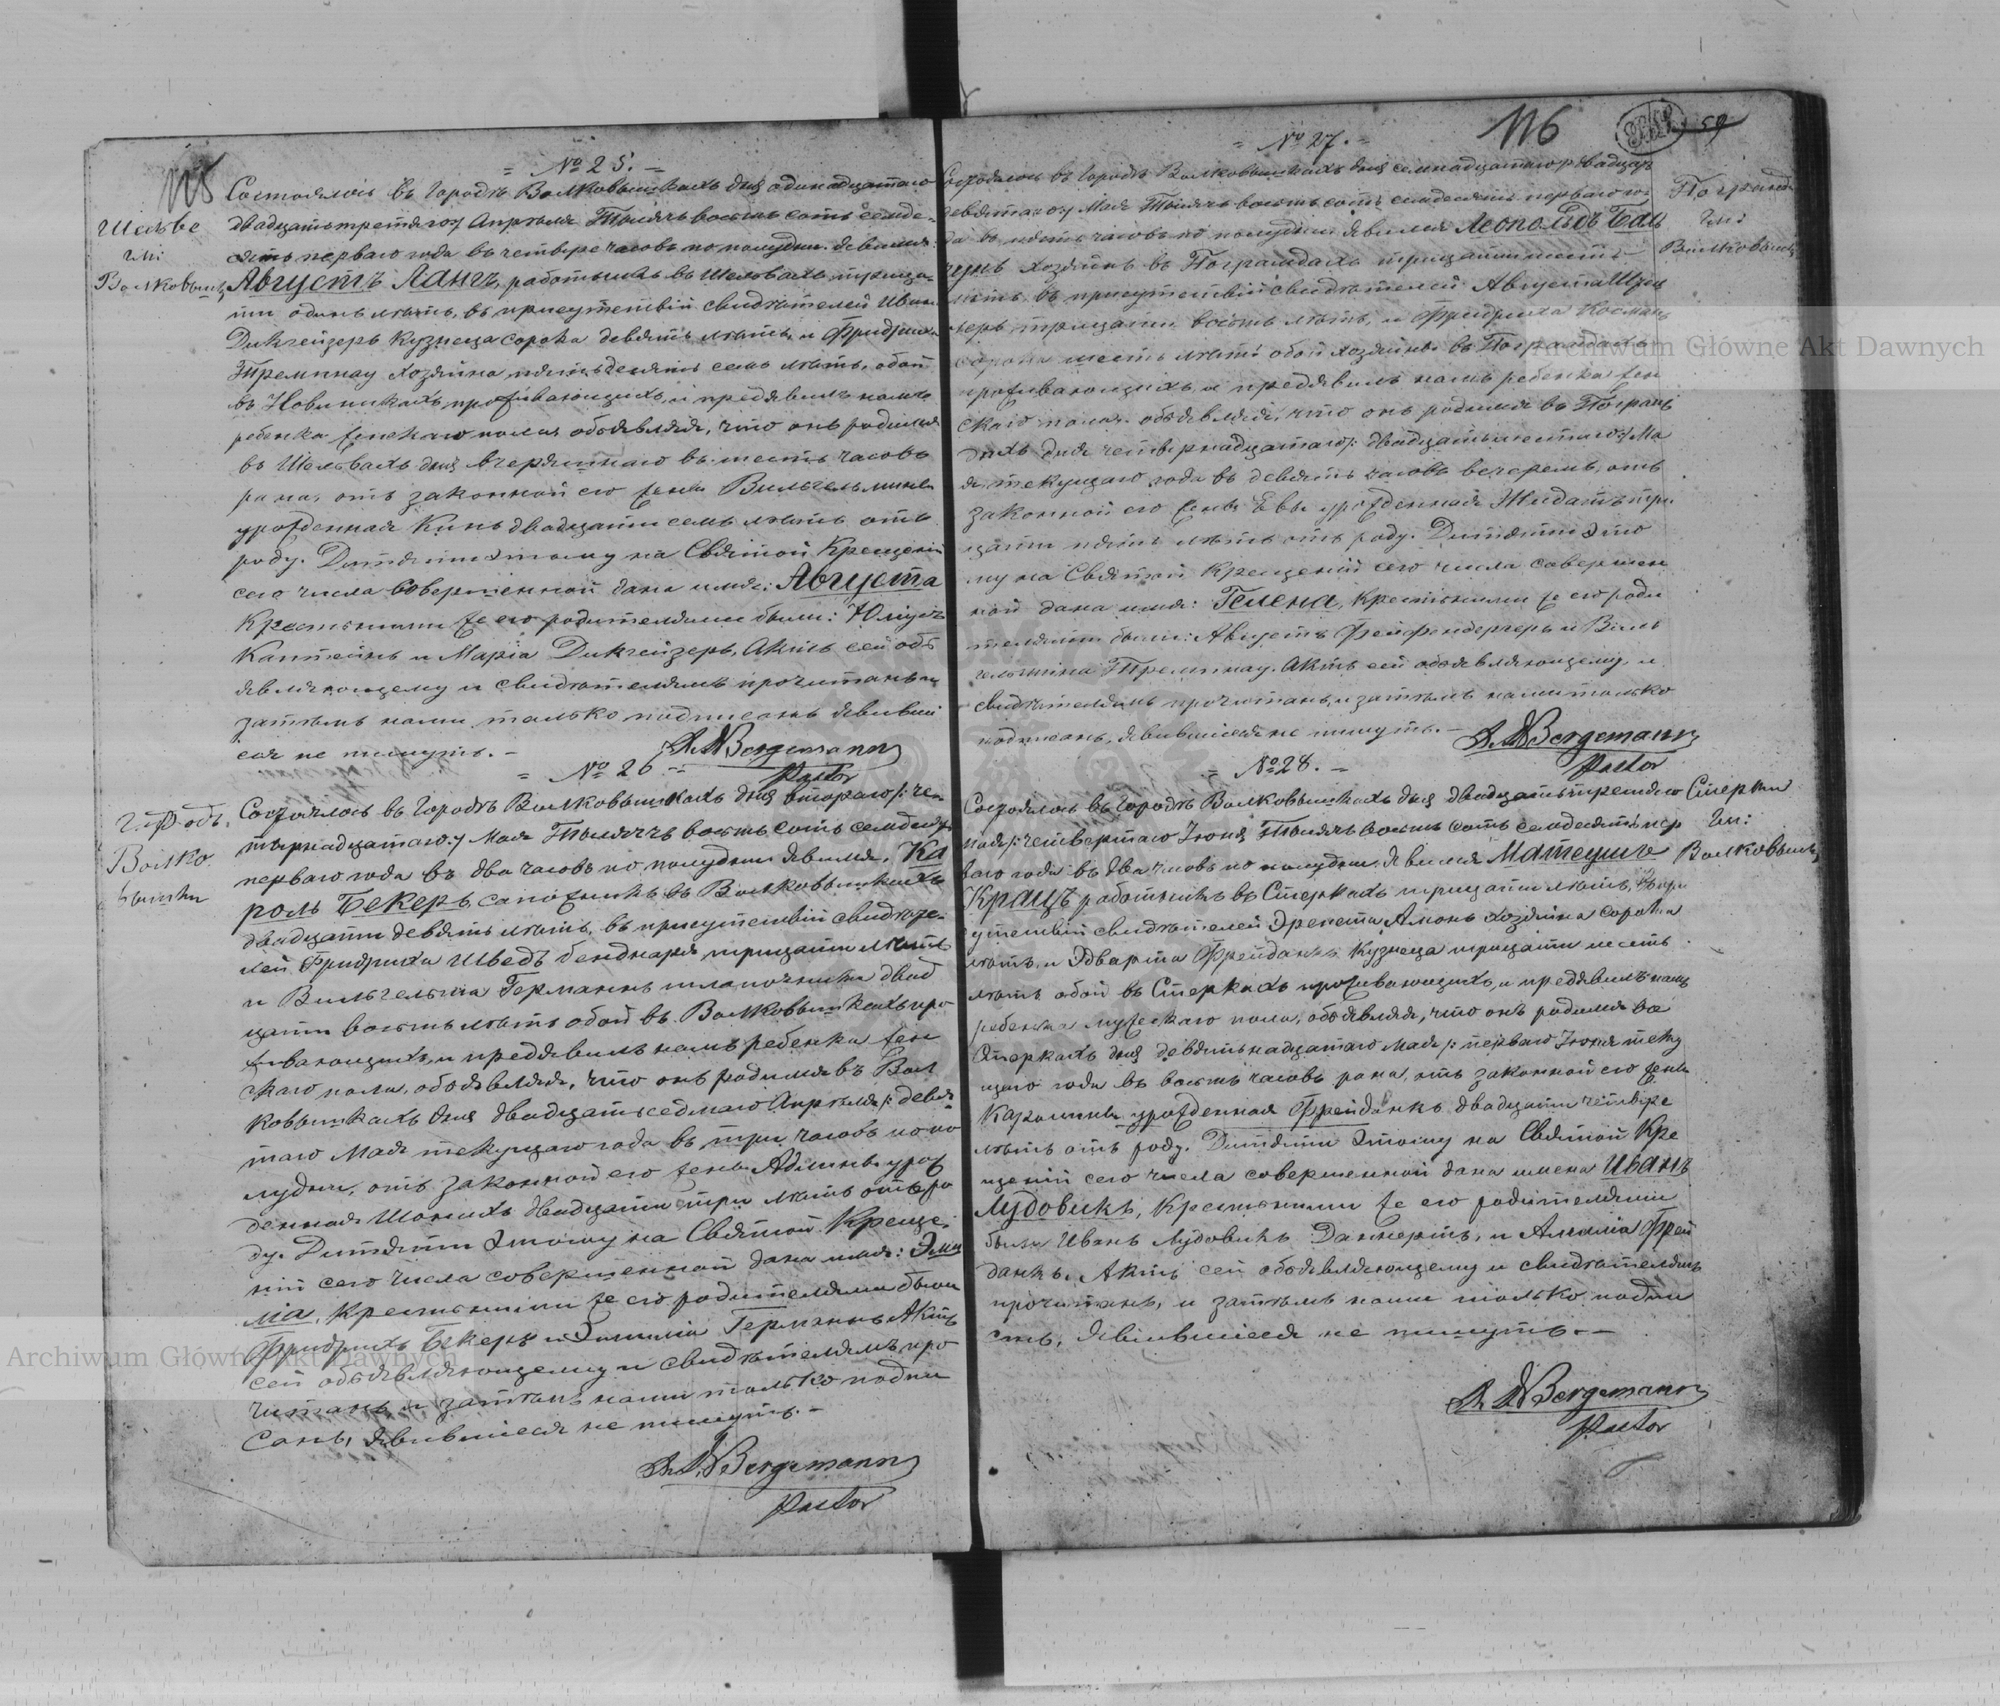 = № 25. =
Состоялось въ Городѣ Волковышкахъ дня одинадцатаго
двадцать третяго Апрѣля Тысяча восемь сотъ семде-
сять перваго года въ четыре часовъ по полудни. Явился:
Августъ Лангъ, работникъ въ Шельвахъ трицa-
ти одинъ лѣтъ, въ присутствіи свидѣтелей Ивана
Дикгейзеръ Кузнеца сорока девять лѣтъ, и Фридриха
Тремпнау хозяина пятьдесять семь лѣтъ, обой
въ Новиникахъ проживающихъ, и предявилъ намъ
ребенка женскаго пола, объявляя, что онъ родился
въ Шельвахъ дня вчерашнаго въ шесть часовъ
рана, отъ законной его жены Вильгельмины
урожденная Кинъ двадцати семь лѣтъ отъ
роду. Дитяти этому на Святой Крещеніи
сего числа совершенной дана имя: Августа
Крестными же его родителями были: Юліусъ
Каптейнъ и Марія Дикгейзеръ, Актъ сей объ
являющему и свидѣтелямъ прочитанъ и
затѣмъ нами только подписанъ явивші
еся не пишутъ. –
Bergemann
Pastor
Шельве
гм:
Волковышк
= № 26 =
Состоялось въ Городѣ Волковышкахъ дня втораго/: че-
тырнадцатаго:/ Мая Тысяча восемь сотъ семдесят
перваго года въ два часовъ по полудни явился, Ка
роль Бекеръ, сапожникъ въ Волковышкахъ
двадцати девять лѣтъ, въ присутствіи свидѣте-
лей Фридриха Шведъ бенднаря трицати лѣтъ
и Вильгельма Германнъ шапочника двад
цати восемь лѣтъ обой въ Волковышкахъ про
живающихъ, и предявилъ намъ ребенка жен
скаго пола, объявляя, что онъ родился въ Вол
ковышкахъ дня двадцать седмаго Апрѣля/: девя-
таго Мая текущаго года въ три часовъ по по
лудни, отъ законной его жены Адлины урож
денная Шонихъ двадцати три лѣтъ отъ ро
ду. Дитяти этому на Святой Креще-
ніи сего числа совершенной дана имя: Эми
лія, Крестными же его родителями были
Фридрихъ Бекеръ и Эмилія Германнъ Актъ
сей объявляющему и свидѣтелямъ про
читанъ и затѣмъ нами только подпи
санъ, явившіеся не пишутъ. –
Bergemann
Pastor
Волко
вышки
116
59
= № 27. =
Состоялось въ Городѣ Волковышкахъ дня семнадцатаго/: двадцать
девятаго:/ Мая Тысяча восемь сотъ семдесять перваго го
да въ пять часовъ по полудни явился Леопольдъ Бал
чунъ хозяинъ въ Пограмдахъ трицати шесть
лѣтъ, въ присутствіи свидѣтелей Августа Шрец
леръ трицати восемь лѣтъ, и Фридриха Косманъ
сорока шесть лѣтъ обой хозяины въ Пограмдахъ
проживающихъ, и предявилъ намъ ребенка жен
скаго пола, объявляя, что онъ родился въ Пограм
дахъ дня четырнадцатаго/: двадцать шестаго:/ Ма
я текущаго года въ девять часовъ вечеремъ, отъ
законной его жены Евы урожденная Жидатъ три
цати пять лѣтъ отъ роду. Дитяти это
му на Святой Крещеніи сего числа совершен
ной дана имя: Гелена, Крестными же его роди
телями были: Августъ Фрейфендергеръ и Виль
гельмина Тремпнау. Актъ сей объявляющему, и
свидѣтелямъ прочитанъ, и затѣмъ нами только
подписанъ, явившіеся не пишутъ. –
Bergemann
Pastor
Пограмд
гм:
Волковышк
= № 28. =
Состоялось въ Городѣ Волковышкахъ дня двадцать третяго
Мая/: четвертаго Іюня Тысяча восемь сотъ семдесять пер
ваго года въ два часовъ по полудни, явился Матеушъ
Кранцъ работникъ въ Стеркахъ трицати лѣтъ, въ при
сутствіи свидѣтелей Эрнеста Амонъ хозяина сорока
лѣтъ, и Эдварта Фрейданкъ Кузнеца трицати шесть
лѣтъ обой въ Стеркахъ проживающихъ, и предявилъ намъ
ребенка мужескаго пола, объявляя, что онъ родился въ
Стеркахъ дня девятьнадцатаго Мая/: перваго Іюня теку
щаго года въ восемь часовъ рана, отъ законной его жены
Каролины урожденная Фрейданкъ двадцати четыре
лѣтъ отъ роду. Дитяти этому на Святой Кре
щеніи сего числа совершенной дана имена Иванъ
Лудовикъ, Крестными же его родителями
были Иванъ Лудовикъ Даннертъ, и Амалія Фрей
данкъ. Актъ сей объявляющему и свидѣтелямъ
прочитанъ, и затѣмъ нами только подпи
санъ, явившіеся не пишутъ. –
Bergemann
Pastor
Стерки
гм:
Волковышк
Archiwum Główne Akt Dawnych
Archiwum Główne Akt Dawnych